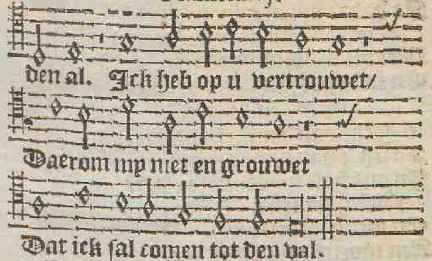 den al. Ick heb op u vertrouwet/
Daerom my niet en grouwet
Dat ick sal comen tot den val.